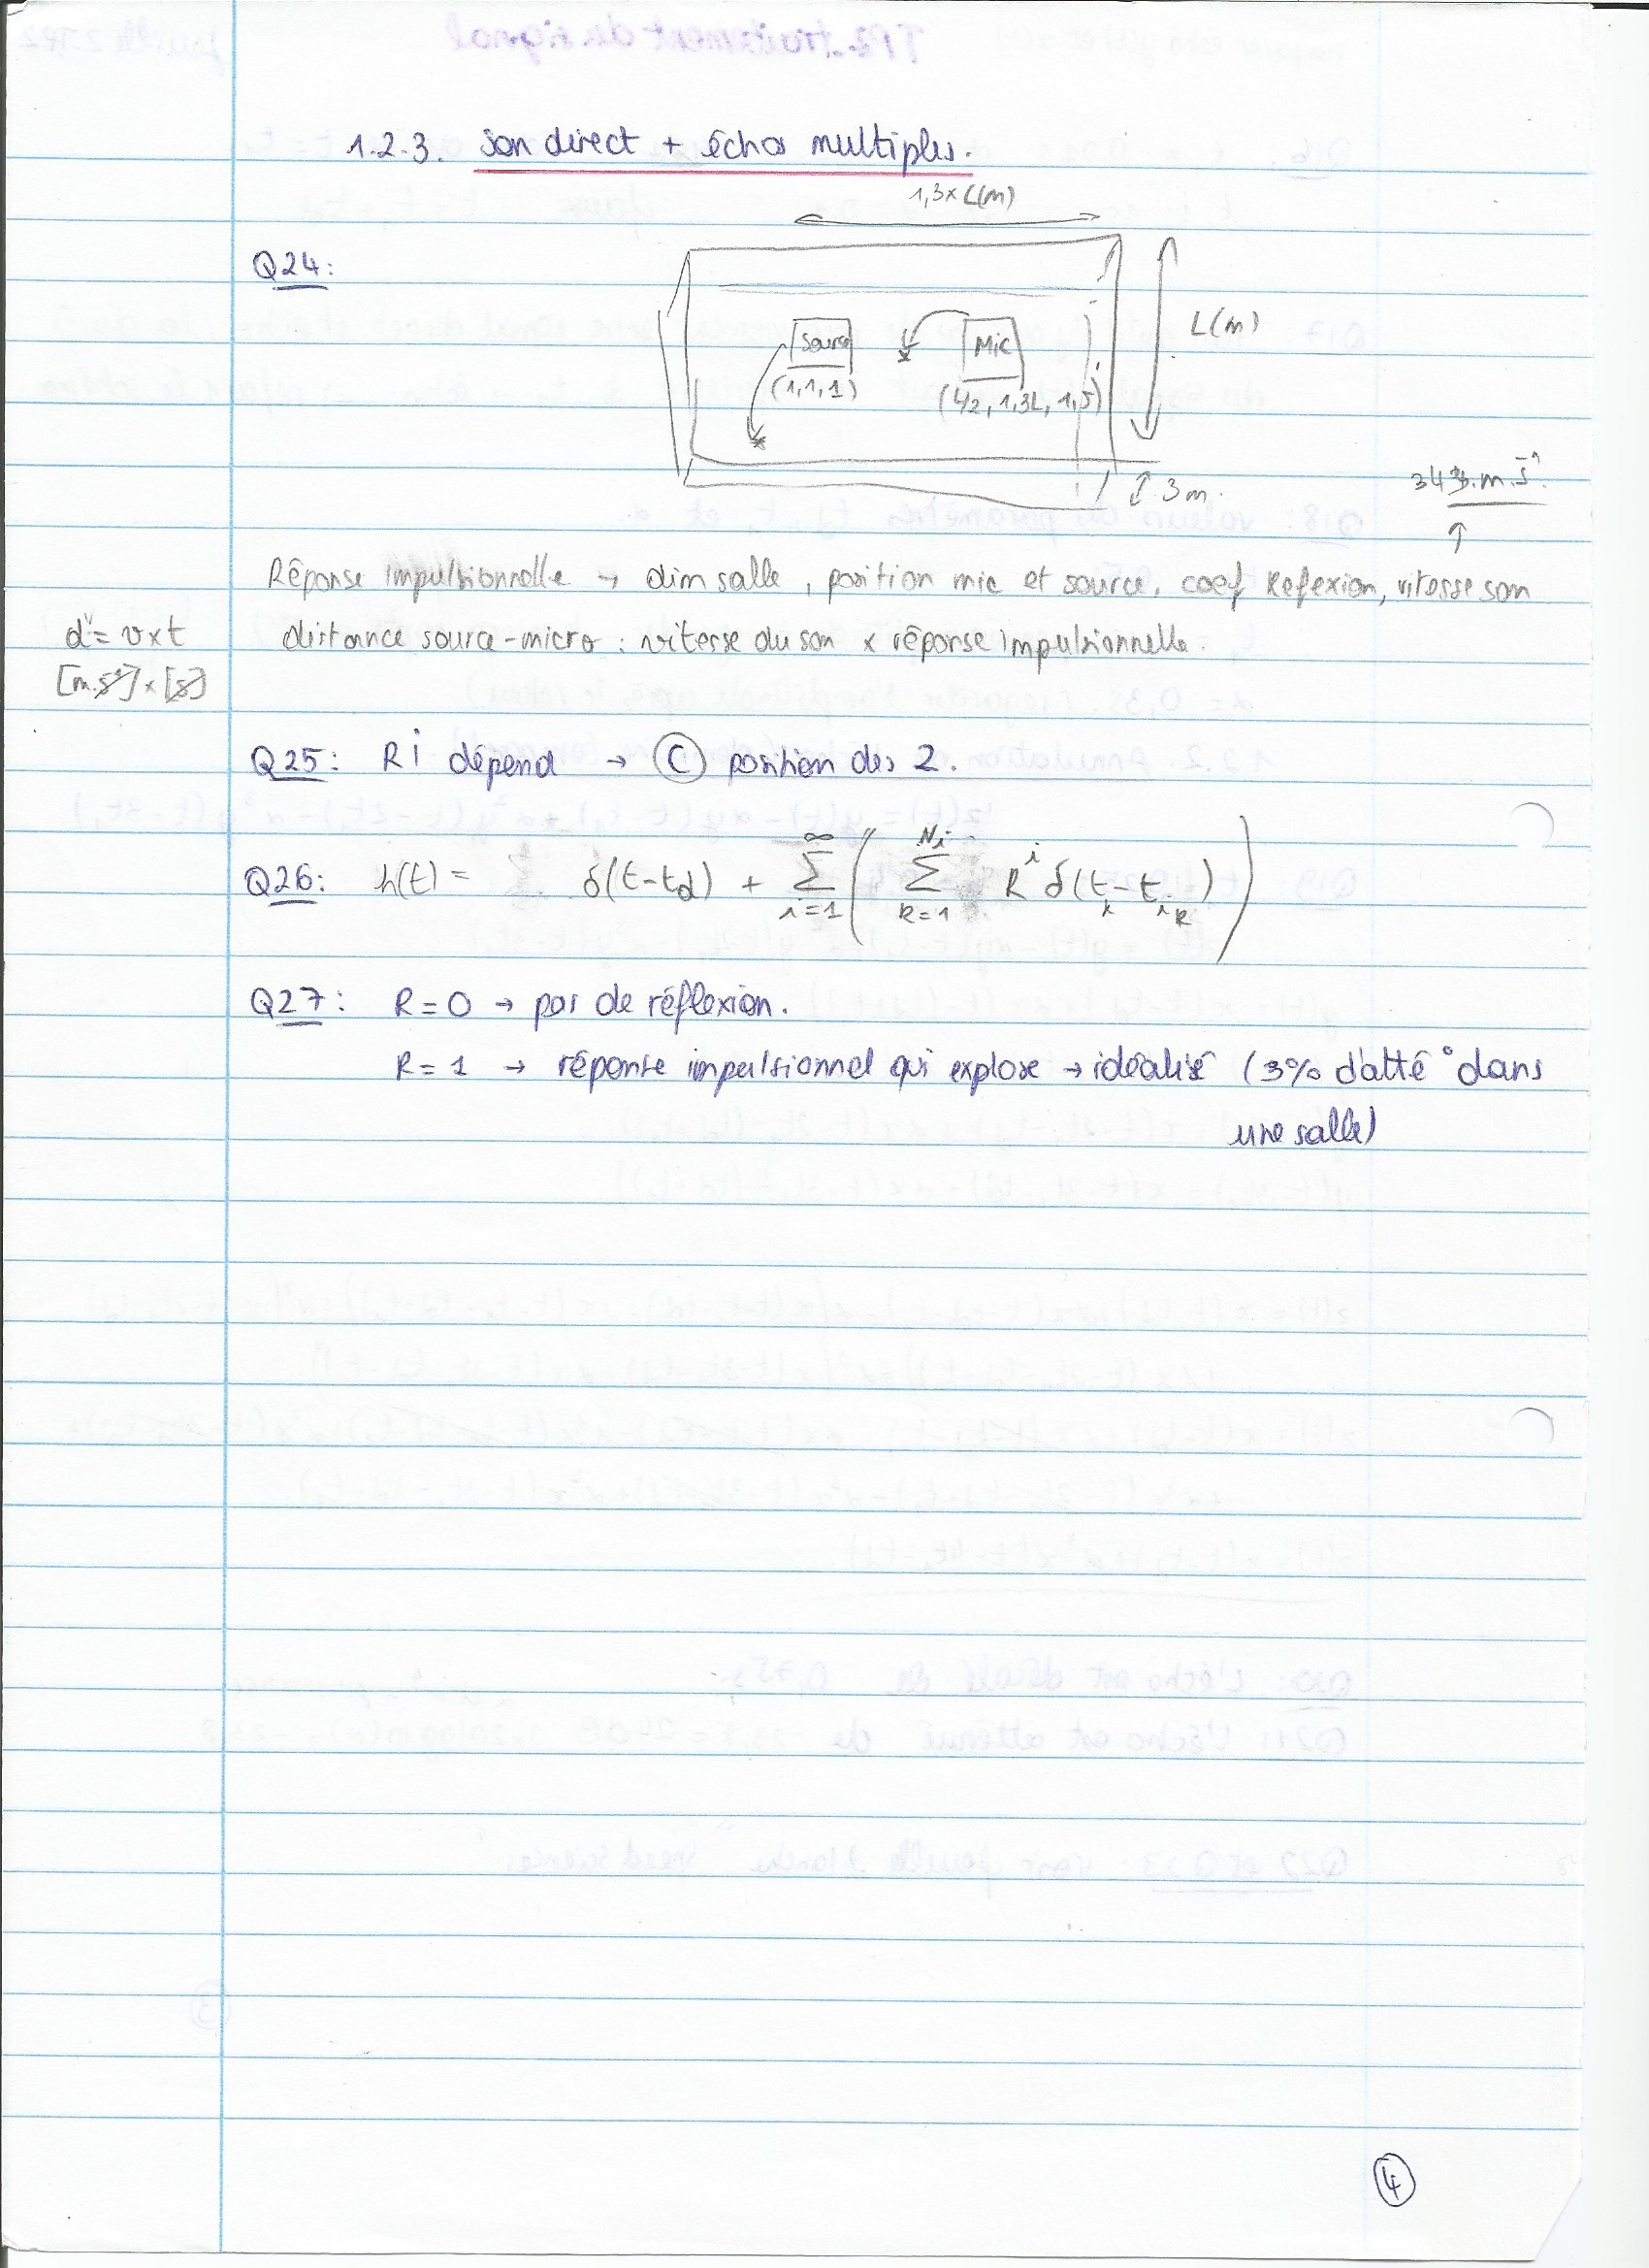 1.2.3. Son direct + échos multiples.
1,3x L(m)
Q24:
L(m)
Source
Mic
(1,1,1)
(L/2, 1,3L, 1,5)
3m.
343.m.s⁻¹
Réponse impulsionnelle → dim salle, position mic et source, coef Reflexion, vitesse son
d = v x t
distance source-micro : vitesse du son x réponse impulsionnelle.
[m.s⁻¹] x [s]
Q25: Ri dépend → (C) position des 2.
Q26: h(t) = δ(t-t_d) + ∑_{i=1}^{∞} ( ∑_{k=1}^{N_i} R^i δ(t - t_{i_k}) )
Q27: R = 0 → pas de réflexion.
R = 1 → réponse impulsionnel qui explose → idéalisé (3% d'atté° dans
une salle)
4